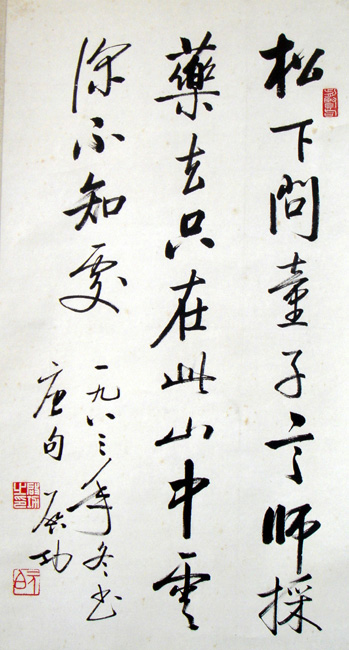 松下問童子言師採
藥去只在此山中雲
深不知處
一九八三年冬書
唐句 啟功